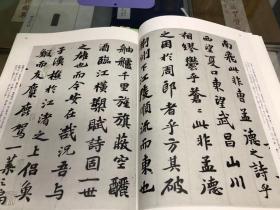 南飛此非曹孟德之詩乎
西望夏口東望武昌山川
相繆鬱乎蒼〻此非孟德
之困於周郎者乎方其破
荊州下江陵順流而東也
舳艫千里旌旗蔽空釃
酒臨江橫槊賦詩固一世
之雄也而今安在哉況吾與
子漁樵於江渚之上侶魚
蝦而友麋鹿駕一葉之扁